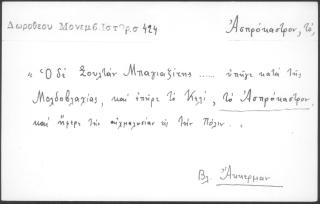 Δωροθέου Μονεμβ. Ἱστορ. σ 424
Ἀσπρόκαστρον, τό,
« Ὁ δὲ Σουλτὰν Μπαγιαζίτης ...... ὑπῆγε κατὰ τῆς
Μολδοβλαχίας, καὶ ἐπῆρε τὸ Κελί, τὸ Ἀσπρόκαστρον,
καὶ ἤφερε τὴν αἰχμαλωσίαν εἰς τὴν Πόλιν . .
Βλ. Ἀκκερμαν